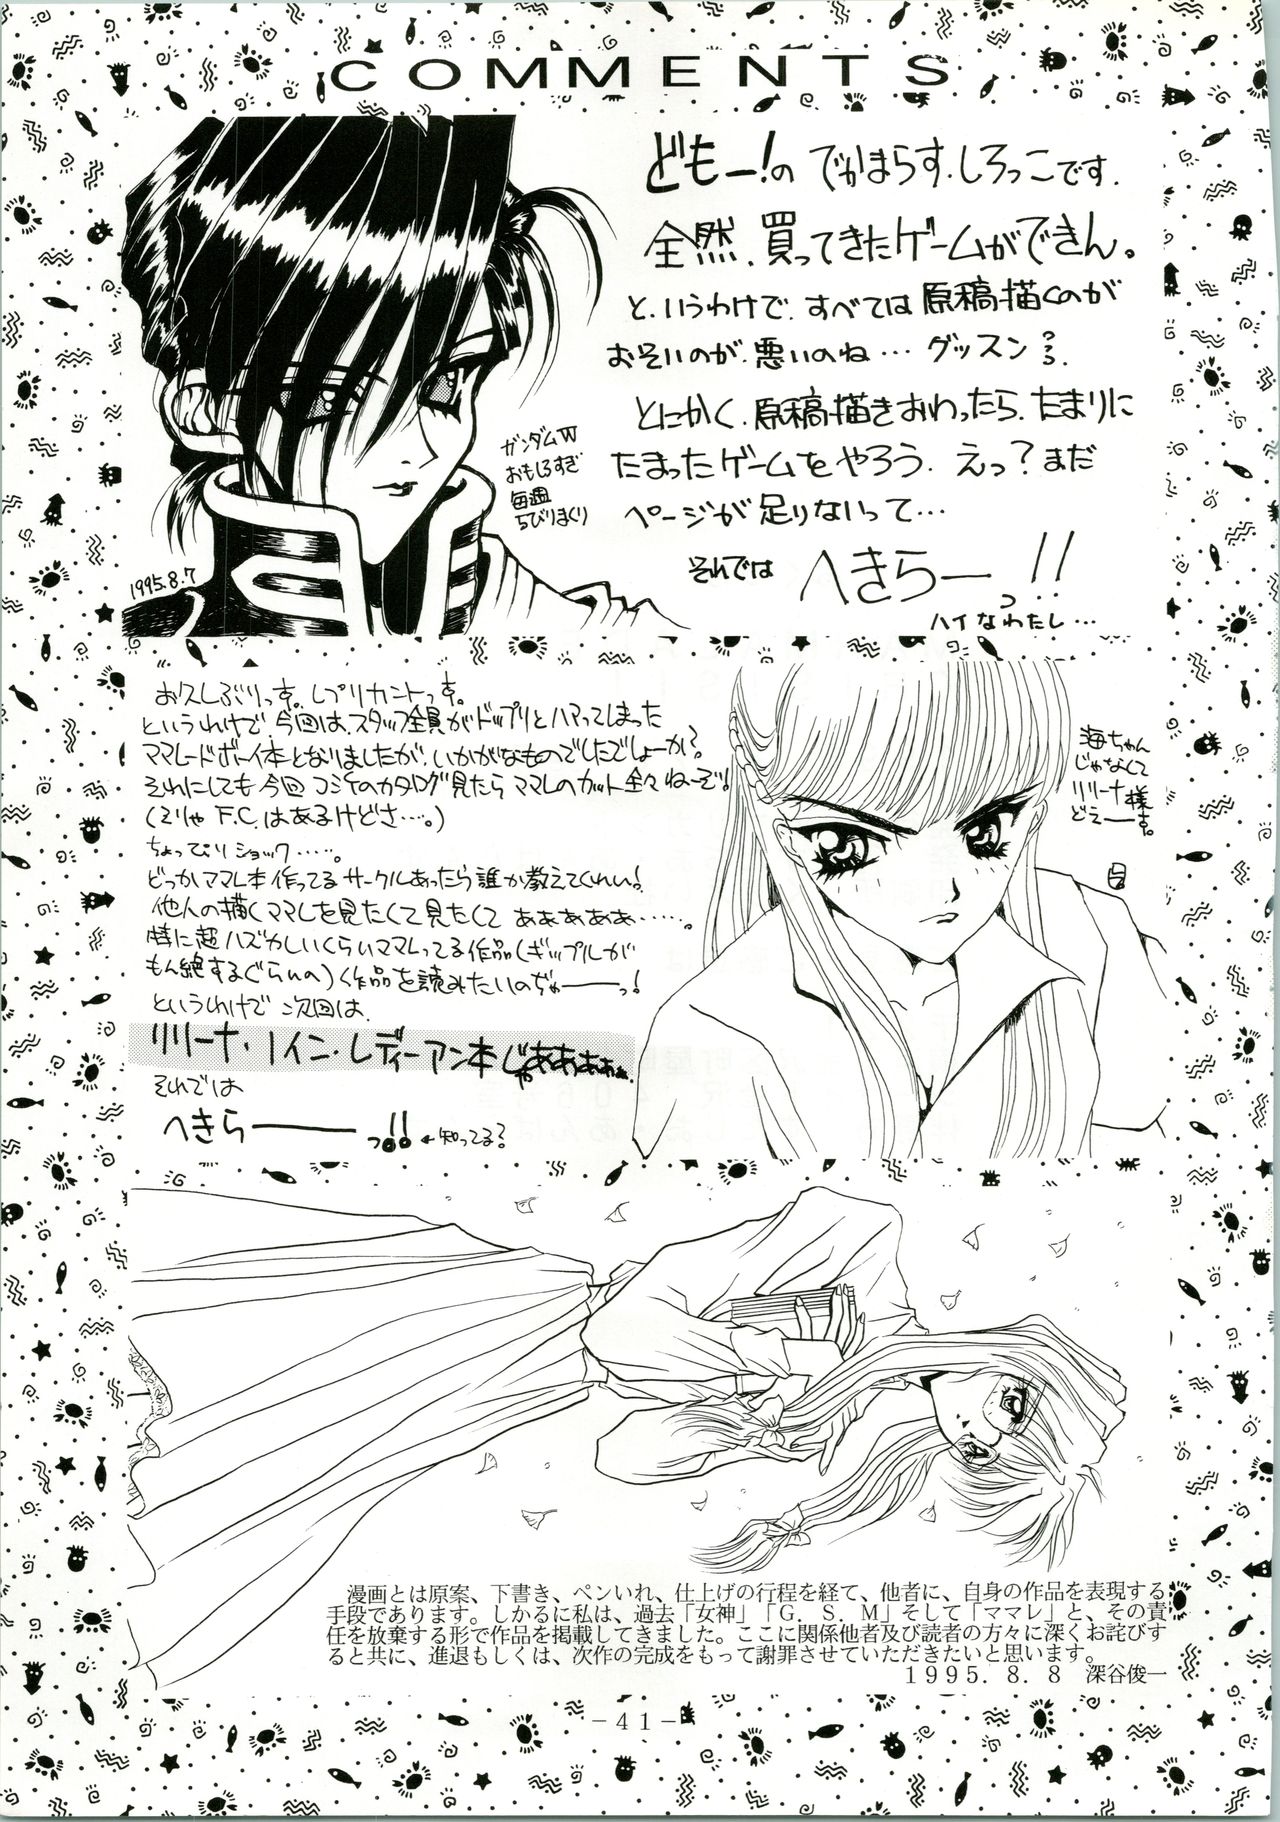 COMMENTS
どもー!の でかまらす.しろっこです.
全然.買ってきたゲームができん。
と.いうわけで.すべては原稿描くのが
おそいのが.悪いのね…グッスン
とにかく.原稿描きおわったら.たまりに
たまったゲームをやろう.えっ?まだ
ページが足りないって…
それでは へきらーっ!!
ハイなわたし…
ガンダムW
おもしろすぎ
毎週
ちびりまくり
1995.8.7
お久しぶりっす。レプリカントっす。
というわけで、今回は、スタッフ全員がドップリとハマってしまった
ママレードボーイ本となりましたが、いかがなものでしたでしょーか?
それにしても今回コミケのカタログ見たらママレのカット全々ねーぞ!
(そりゃF.C.はあるけどさ…。)
ちょっぴりショック……。
どっかママレ本作ってるサークルあったら誰か教えてくれい!
他人の描くママレを見たくて見たくてああああああ……。
特に超ハズかしいくらいママレってる作品(ギップルが
もん絶するぐらいの)作品を読みたいのぢゃーーっ!
というわけで次回は、
リリーナ・ノイン・レディーアン本じゃああああぁ
それでは
へきらーーーっ!! ←知ってる?
海ちゃん
じゃなくて
リリーナ様
どえーーす。
漫画とは原案、下書き、ペンいれ、仕上げの行程を経て、他者に、自身の作品を表現する
手段であります。しかるに私は、過去「女神」「G.S.M」そして「ママレ」と、その責
任を放棄する形で作品を掲載してきました。ここに関係他者及び読者の方々に深くお詫びす
ると共に、進退もしくは、次作の完成をもって謝罪させていただきたいと思います。
1995.8.8 深谷俊一
-41-